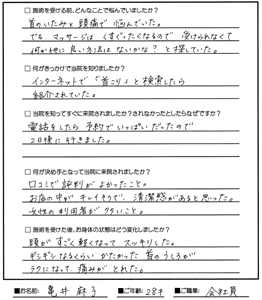 □ 施術を受ける前、どんなことで悩んでいましたか?
首のいたみと頭痛で悩んでいた。
でも、マッサージは くすぐったくなるので 受けられなくて
何か他に良い方法はないかな?と探していた。
□ 何がきっかけで当院を知りましたか?
インターネットで「首こり」と検索したら
紹介されていた。
□ 当院を知ってすぐに来院されましたか?されなかったとしたらなぜですか?
電話をしたら 予約でいっぱいだったので
2日後に行きました。
□ 何が決め手となって当院に来院されましたか?
口コミで評判がよかったこと。
お店の中がキレイそうで、清潔感があると思った。
女性の利用者が多いこと。
□ 施術を受けた後、お身体の状態はどう変化しましたか?
頭がすごく軽くなって スッキリした。
ギシギシなるくらい かたかった 首のうしろが
ラクになって 痛みが とれた。
■お名前: 亀井 麻子 ■ご年齢: 28才 ■ご職業: 会社員